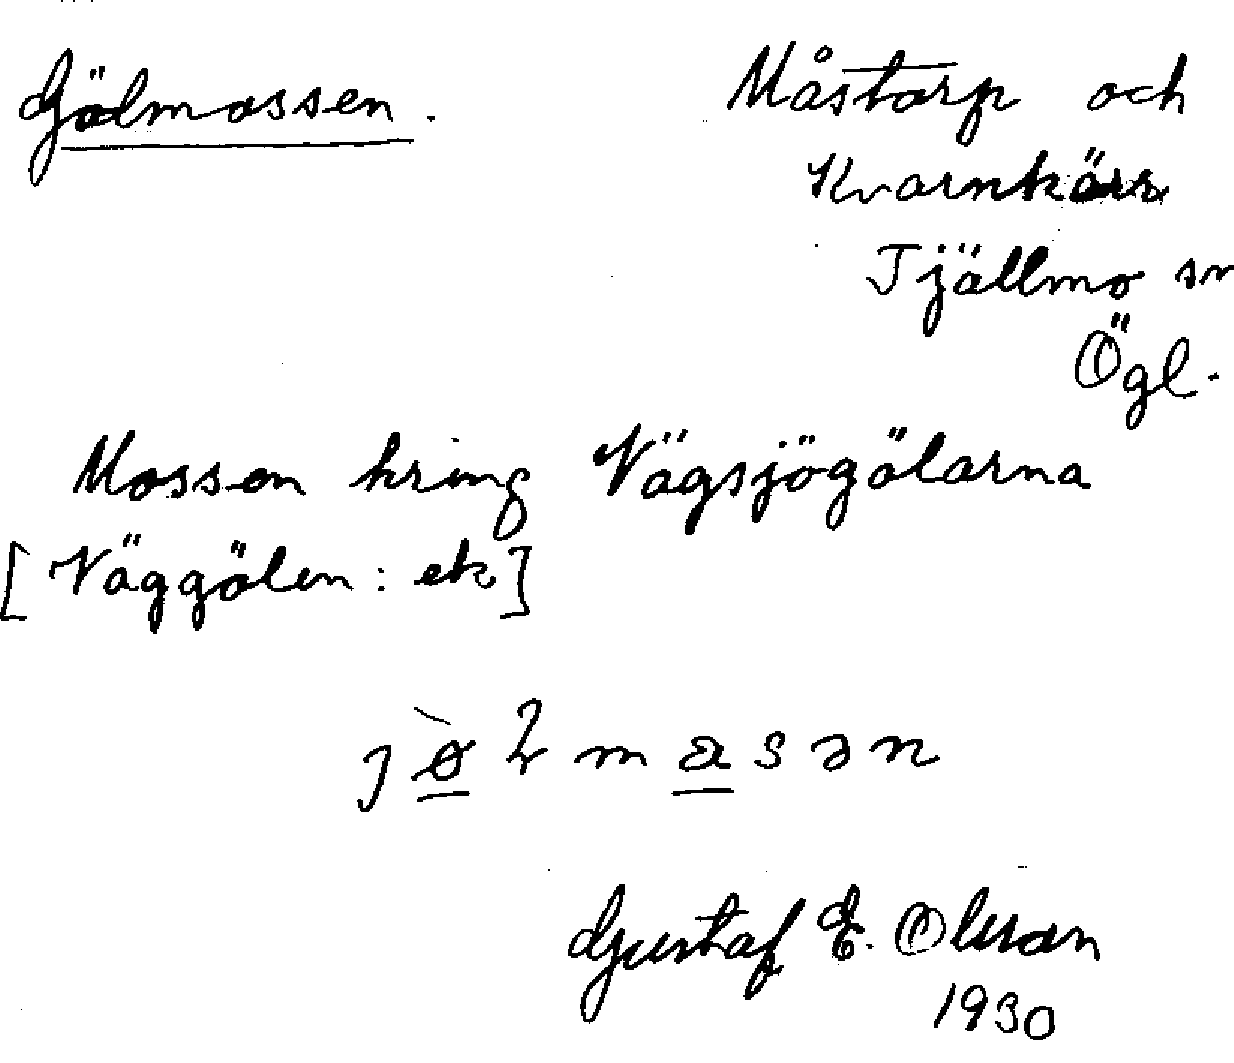 Gölmossen.
Måstorp och
Kvarnkärr
Tjällmo sn
Ögl.
Mossen kring Vägsjögölarna
[Väggölen: ek]
Gustaf E. Olsson
1930